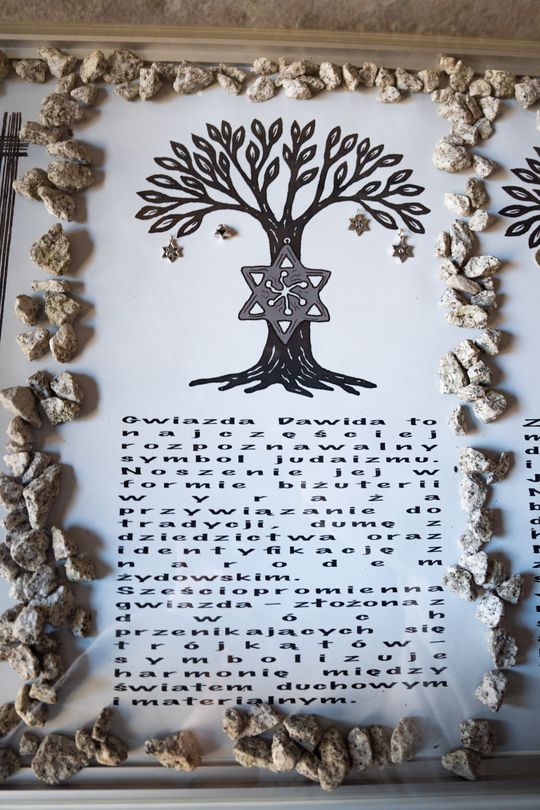 Gwiazda Dawida to
najczęściej
rozpoznawalny
symbol judaizmu.
Noszenie jej w
formie biżuterii
wyraża
przywiązanie do
tradycji, dumę z
dziedzictwa oraz
identyfikację z
narodem
żydowskim.
Sześciopromienna
gwiazda – złożona z
dwóch
przenikających się
trójkątów –
symbolizuje
harmonię między
światem duchowym
i materialnym.